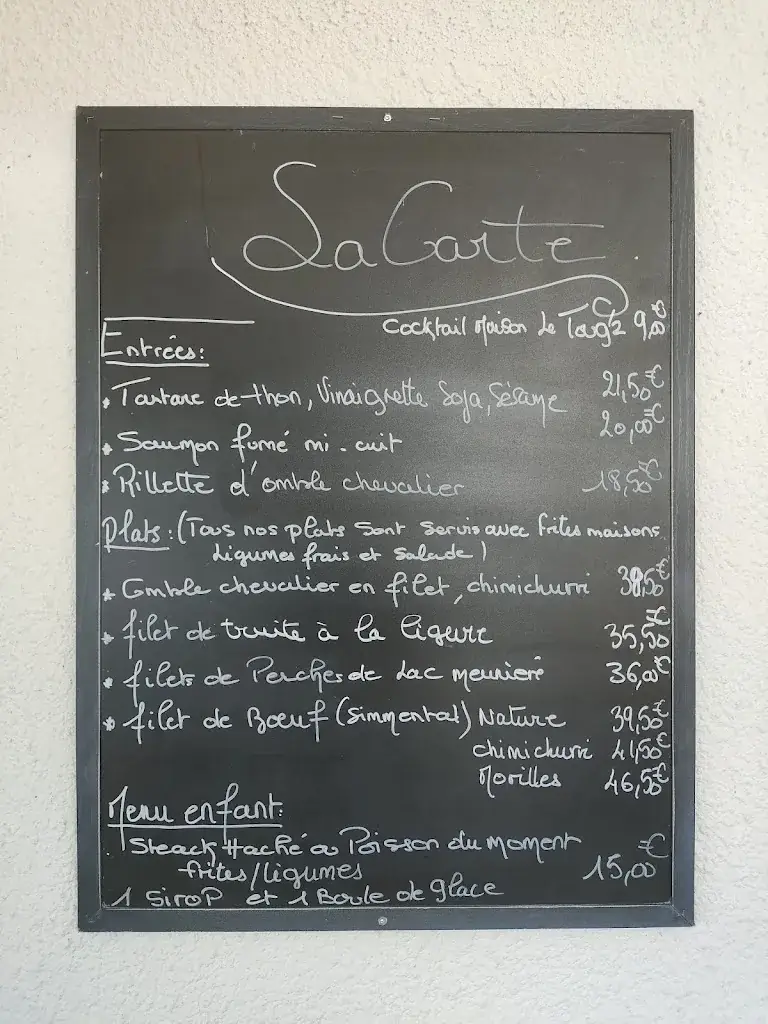 La Carte
Cocktail Maison Le Taga 9,00€
Entrées:
* Tartare de thon, Vinaigrette Soja, Sésame 21,50€
* Saumon fumé mi-cuit 20,00€
* Rillette d'omble chevalier 18,50€
Plats: (Tous nos plats sont servis avec frites maisons
Légumes frais et Salade)
* Omble chevalier en filet, chimichurri 38,50€
* filet de truite à la ligure 35,50€
* filets de Perches de Lac meunière 36,00€
* filet de Bœuf (Simmental) Nature 39,50€
chimichurri 41,50€
Morilles 46,50€
Menu enfant:
Steack Haché ou Poisson du moment
frites/légumes 15,00€
1 Sirop et 1 Boule de glace